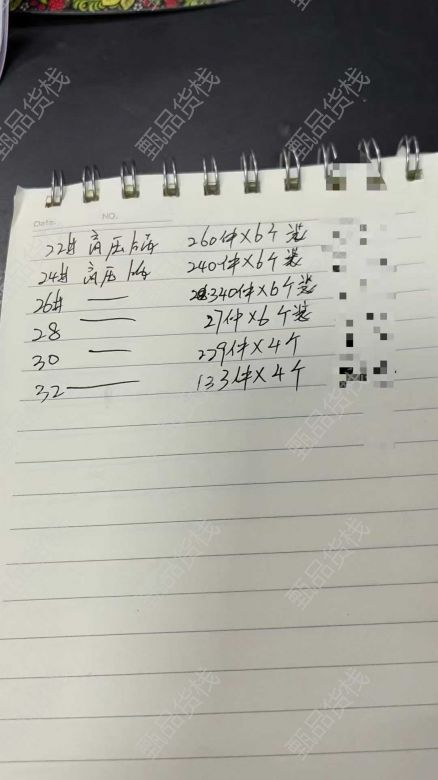 Date. NO.
22# 高压锅 260件×6个装
24# 高压锅 240件×6个装
26# — 340件×6个装
28 — 27件×6个装
30 — 229件×4个
32 — 133件×4个
甄品货栈
甄品货栈
甄品货栈
甄品货栈
甄品货栈
甄品货栈
甄品货栈
甄品货栈
甄品货栈
甄品货栈